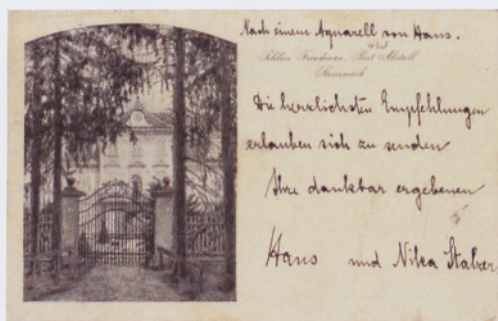 Nach einem Aquarell von Hans.
Schloss Freudenau, Post Abstall
Steiermark
Die herzlichsten Empfehlungen
erlauben sich zu senden
Ihre dankbar ergebenen
Hans und